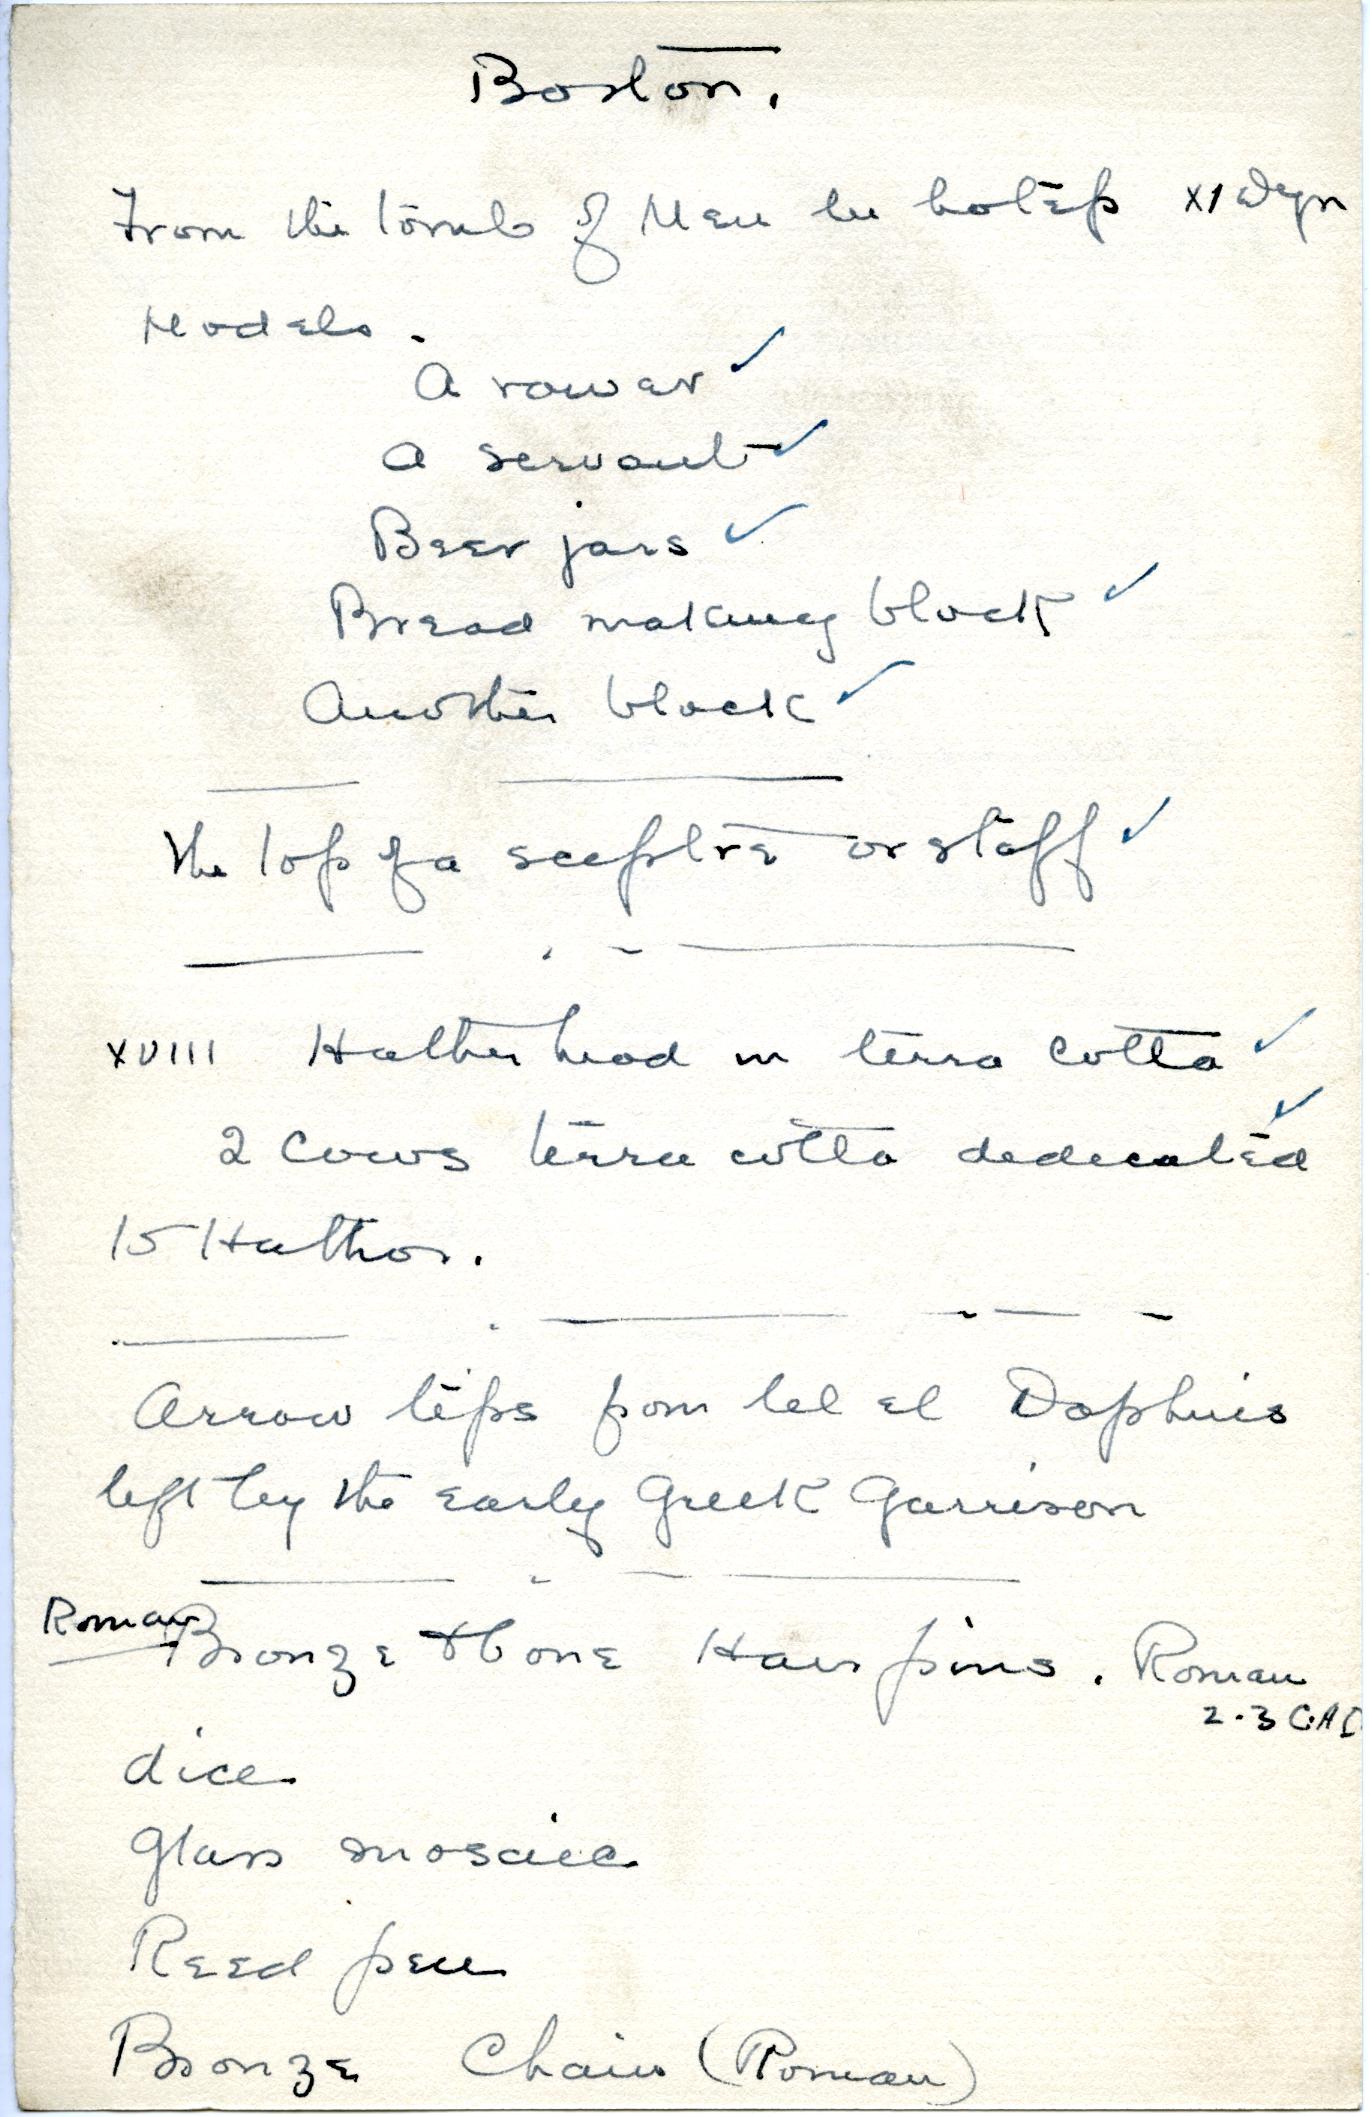 Boston.
From the tomb of Men tu hotep XI Dyn
Models.
A rower ✓
A servant ✓
Beer jars ✓
Bread making block ✓
Another block ✓
The top of a sceptre or staff ✓
XVIII Hathor head in terra cotta ✓
2 Cows terra cotta dedicated ✓
to Hathor.
Arrow tips from tel el Daphnis
left by the early Greek Garrison
Roman
Bronze & bone Hair pins. Roman
2-3 C.AD
dice
Glass mosaic
Reed pen
Bronze Chain (Roman)